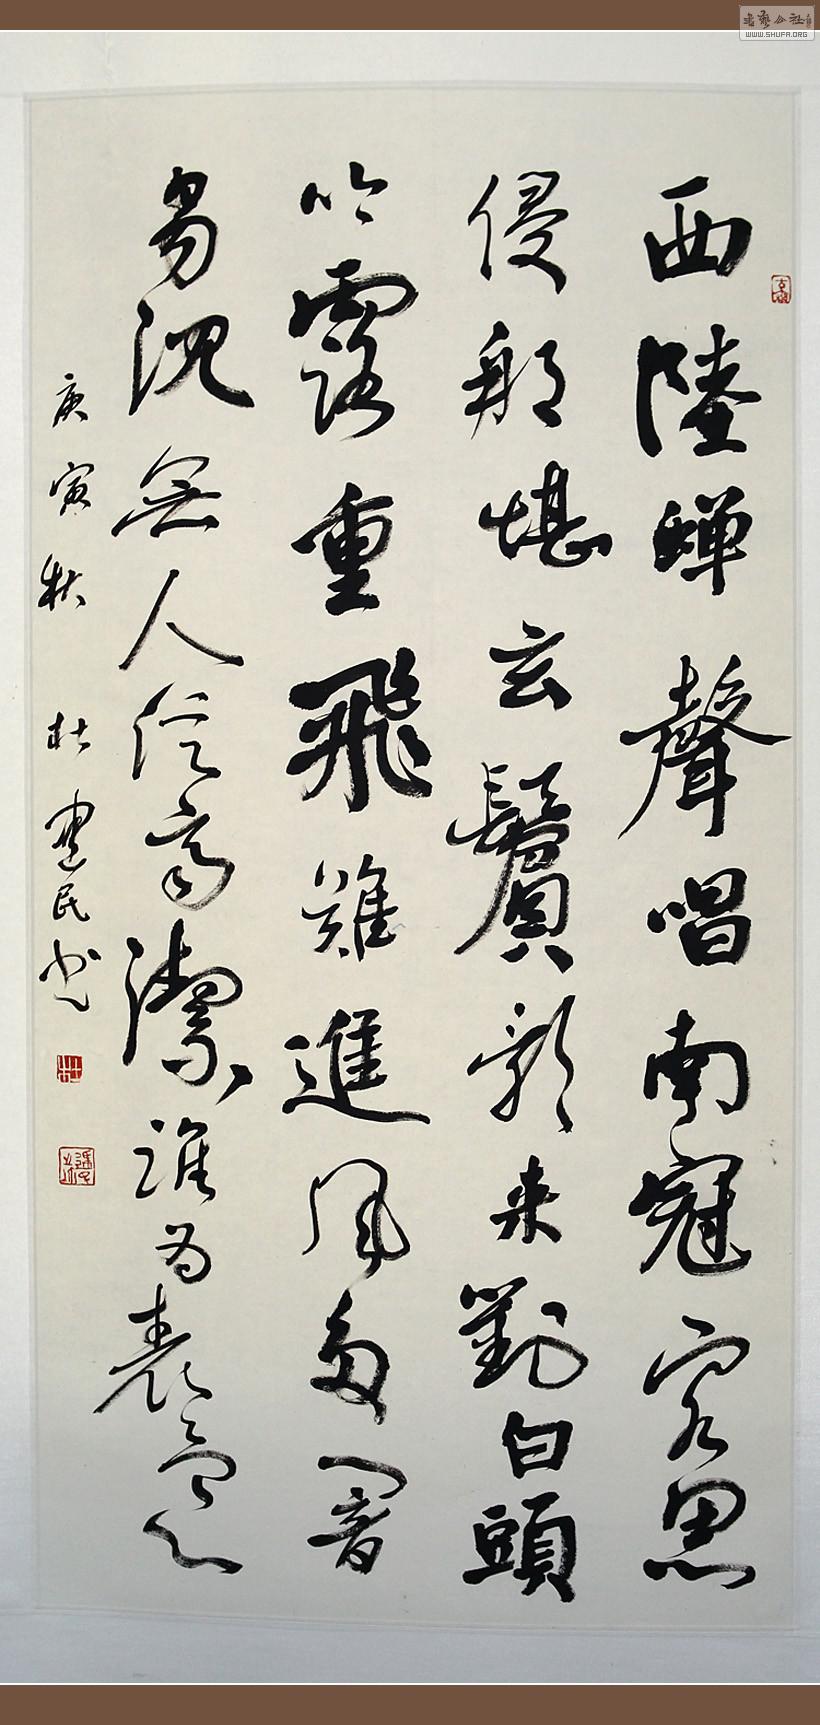 西陸蝉聲唱南冠客思
侵那堪玄鬢影来對白頭
吟露重飛難進風多響
易沉無人信高潔誰為表予心
庚寅秋 杜建民书
WWW.SHUFA.ORG